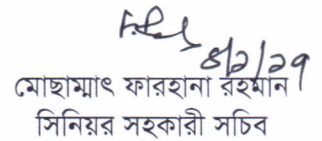 ৪/১/২৭
মোছাম্মাৎ ফারহানা রহমান
সিনিয়র সহকারী সচিব